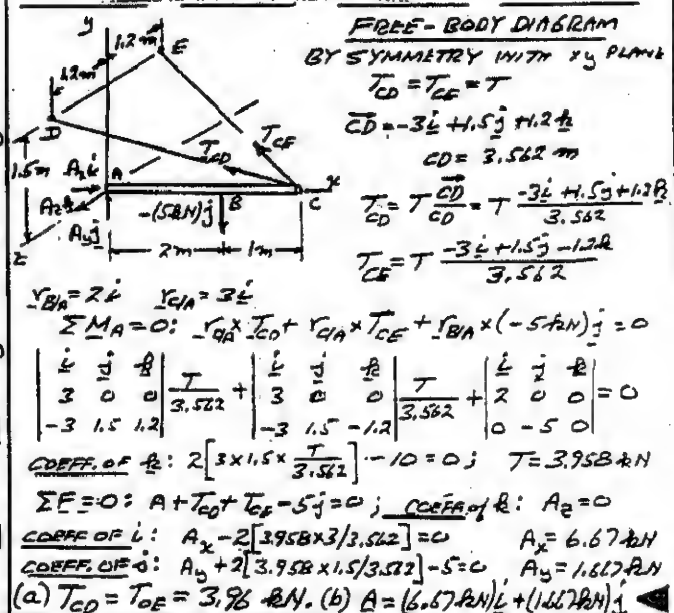 FREE-BODY DIAGRAM
BY SYMMETRY WITH xy PLANE
T_CD = T_CE = T
CD = -3i + 1.5j + 1.2k
CD = 3.562 m
T_CD = T CD/CD = T (-3i + 1.5j + 1.2k)/3.562
T_CE = T (-3i + 1.5j - 1.2k)/3.562
y
1.2m
E
1.2m
D
T_CE
T_CD
1.5m
A_x i
A
x
A_z k
-(5kN)j
B
C
A_y j
z
2m
1m
r_B/A = 2i r_C/A = 3i
ΣM_A = 0: r_C/A × T_CD + r_C/A × T_CE + r_B/A × (-5kN)j = 0
| i j k | | i j k | | i j k |
| 3 0 0 | T/3.562 + | 3 0 0 | T/3.562 + | 2 0 0 | = 0
| -3 1.5 1.2 | | -3 1.5 -1.2 | | 0 -5 0 |
COEFF. OF k: 2[3×1.5×T/3.562] - 10 = 0; T = 3.958 kN
ΣF = 0: A + T_CD + T_CE - 5j = 0; COEFF. of k: A_z = 0
COEFF OF i: A_x - 2[3.958×3/3.562] = 0 A_x = 6.67 kN
COEFF. OF j: A_y + 2[3.958×1.5/3.562] - 5 = 0 A_y = 1.667 kN
(a) T_CD = T_CE = 3.96 kN. (b) A = (6.67kN)i + (1.667kN)j ◄